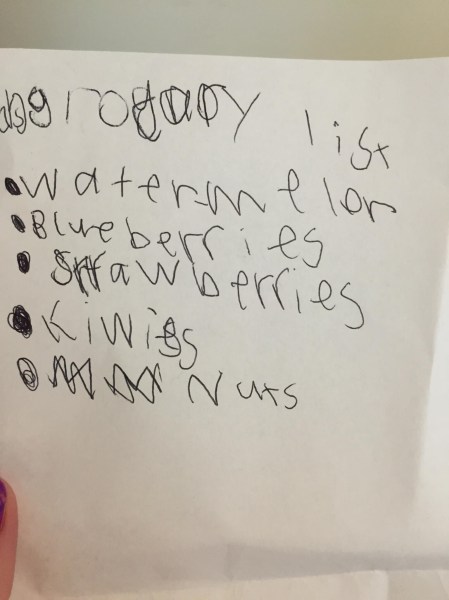 list
•Watermelon
•Blueberries
•Strawberries
•Kiwis
•Nuts